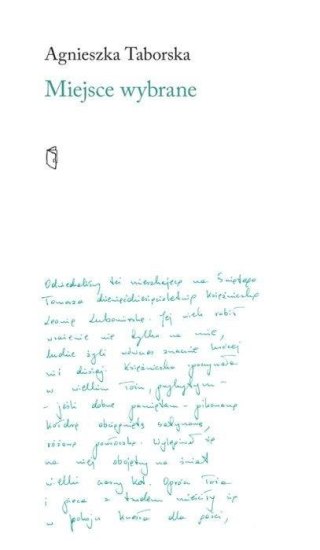 Agnieszka Taborska
Miejsce wybrane
Odwiedzaliśmy też mieszkającą na Świętego
Tomasza dziewięćdziesięcioletnią księżniczkę
Leonię Lubomirską. Jej wiek robił
wrażenie nie tylko na mnie,
ludzie żyli wówczas znacznie krócej
niż dzisiaj. Księżniczka przyjmowała
w wielkim łożu, przykrytym –
– jeśli dobrze pamiętam – pikowaną
kołdrą obciągniętą satynową,
różową poszewką. Wylegiwał się
na niej obojętny na świat
wielki czarny kot. Oprócz łoża
i pieca z trudem mieściły się
w pokoju krzesła dla gości,